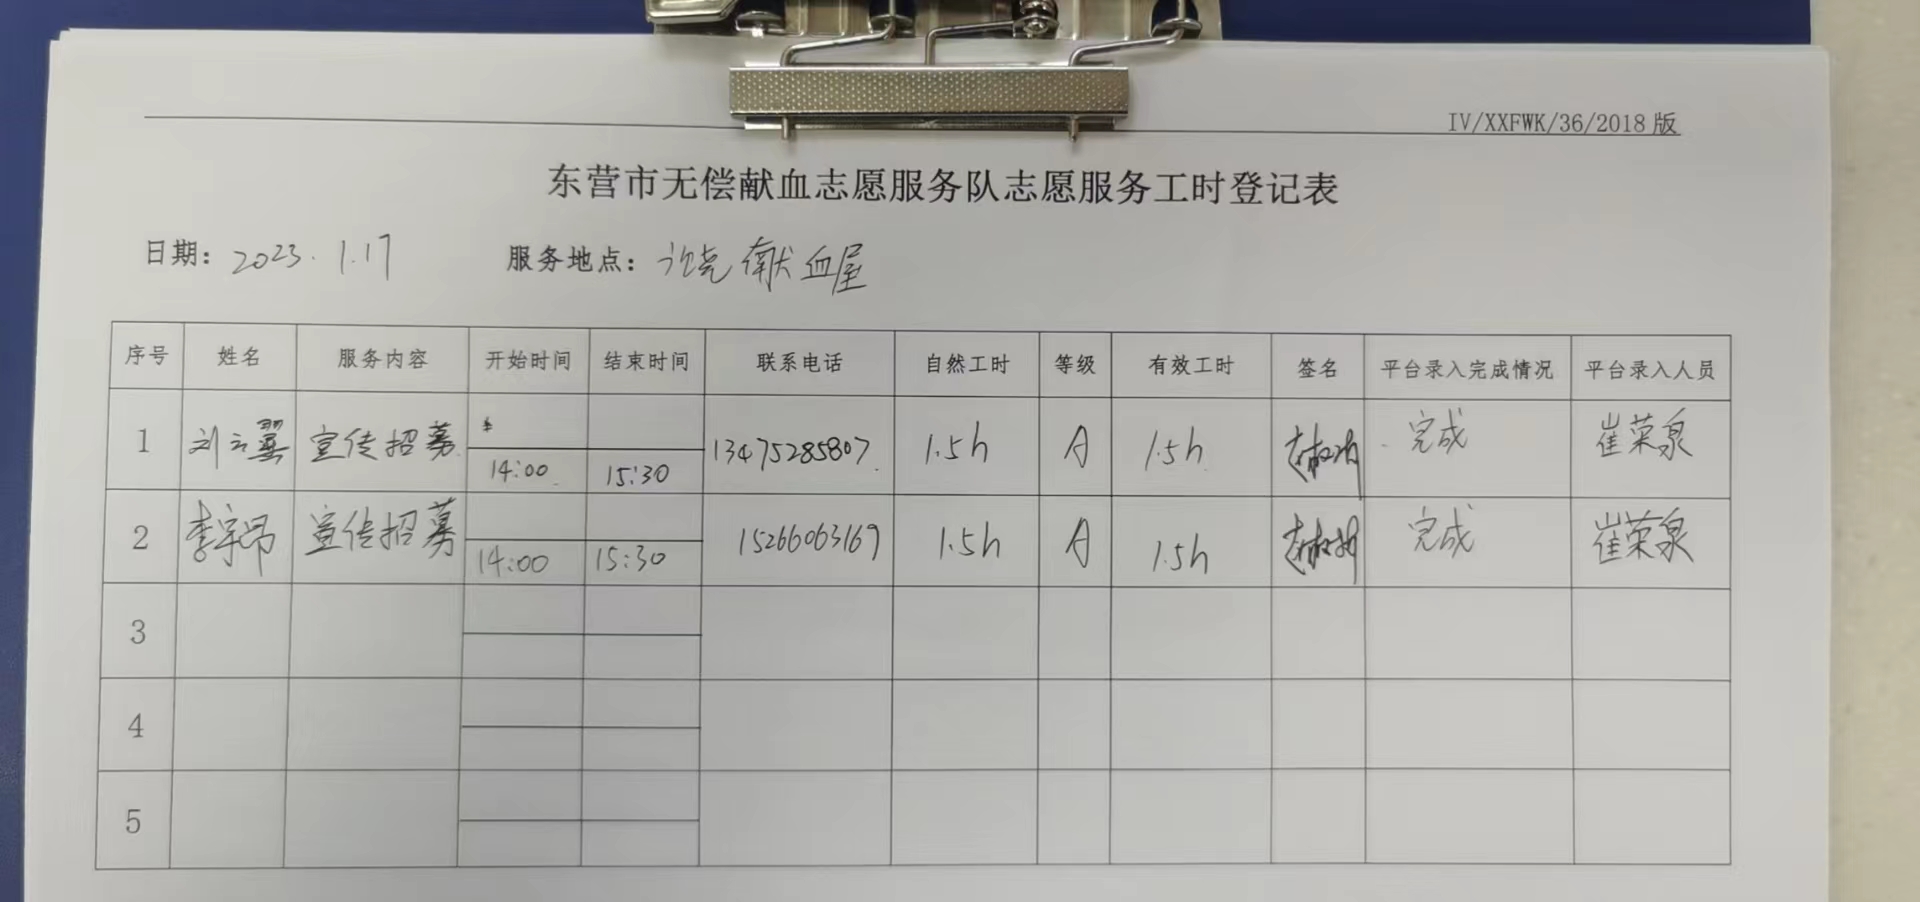 IV/XXFWK/36/2018版
东营市无偿献血志愿服务队志愿服务工时登记表
日期: 2023.1.17 服务地点: 献血屋
序号 姓名 服务内容 开始时间 结束时间 联系电话 自然工时 等级 有效工时 签名 平台录入完成情况 平台录入人员
1 刘云翼 宣传招募 14:00 15:30 13475285807 1.5h A 1.5h 完成 崔荣泉
2 李宇昂 宣传招募 14:00 15:30 15266063169 1.5h A 1.5h 完成 崔荣泉
3
4
5